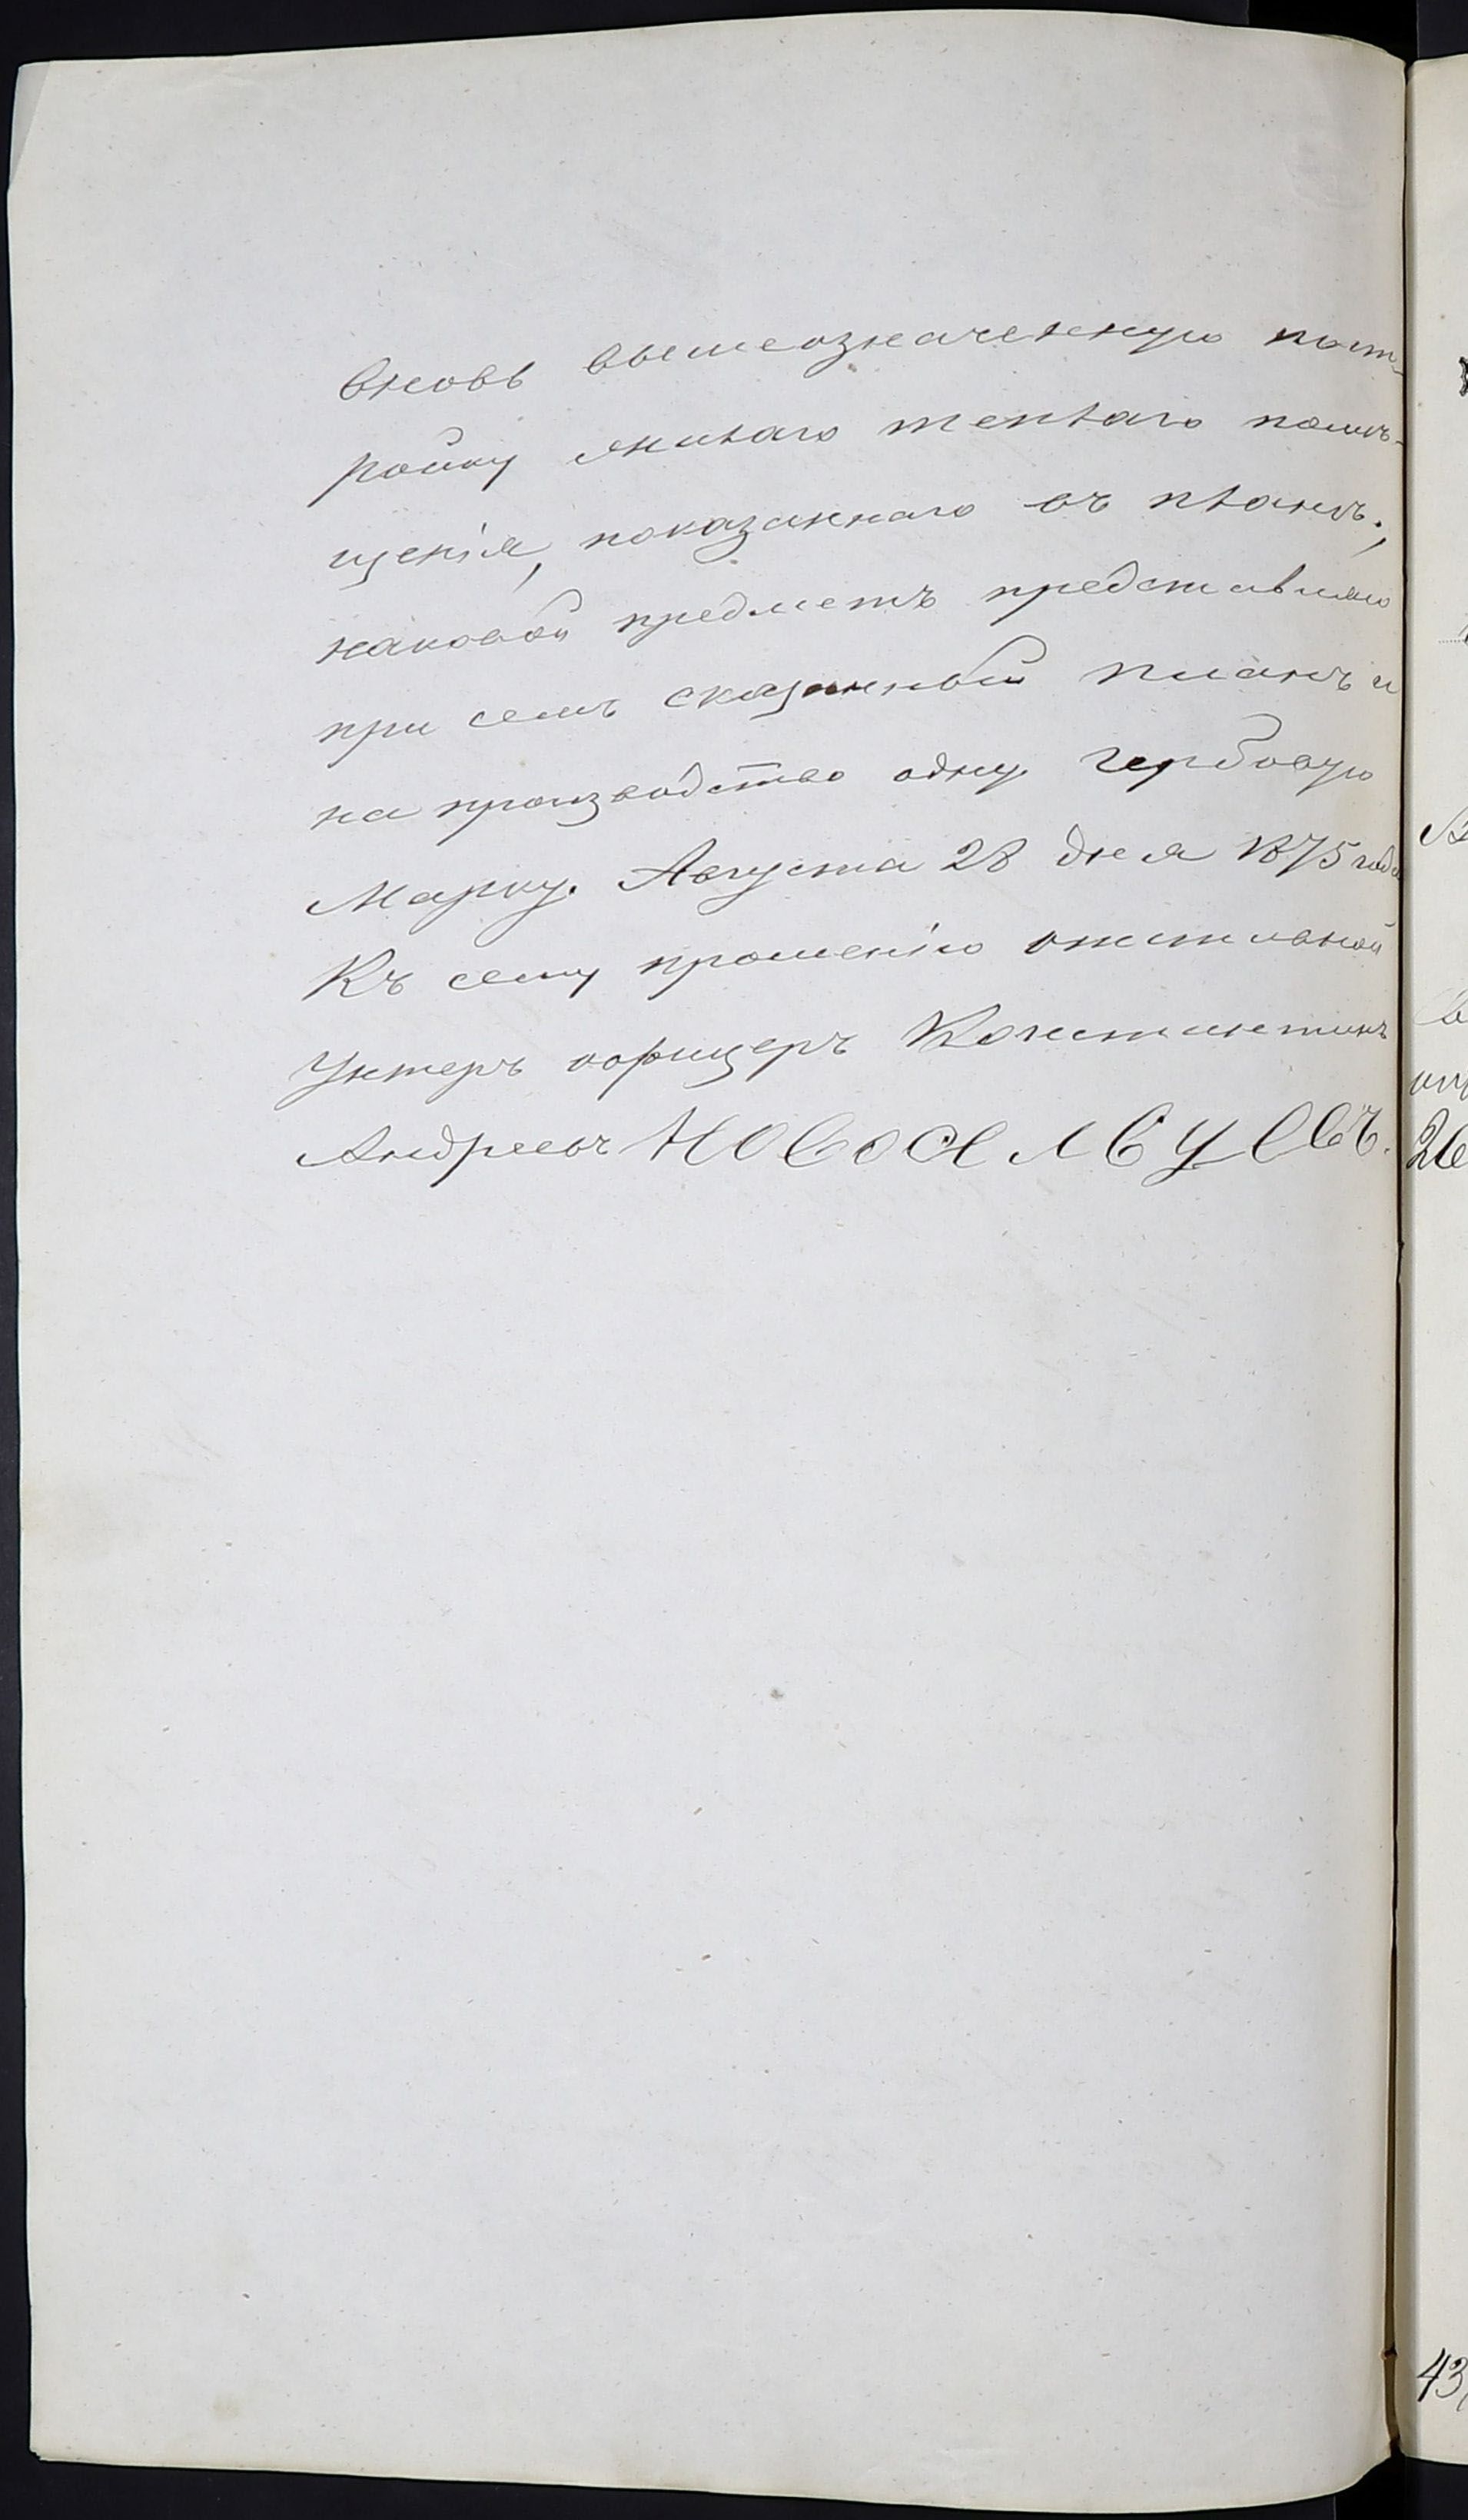 вновь вышеозначенную пост-
ройку жилаго теплаго помѣ-
щенія, показаннаго въ планѣ;
на каковой предметъ представляю
при семъ сказанный планъ и
на производство одну гербовую
Марку. Августа 28 дня 1875 года
Къ сему прошенію отставной
Унтеръ офицеръ Константинъ
Андреевъ Новосельцевъ.
26
43